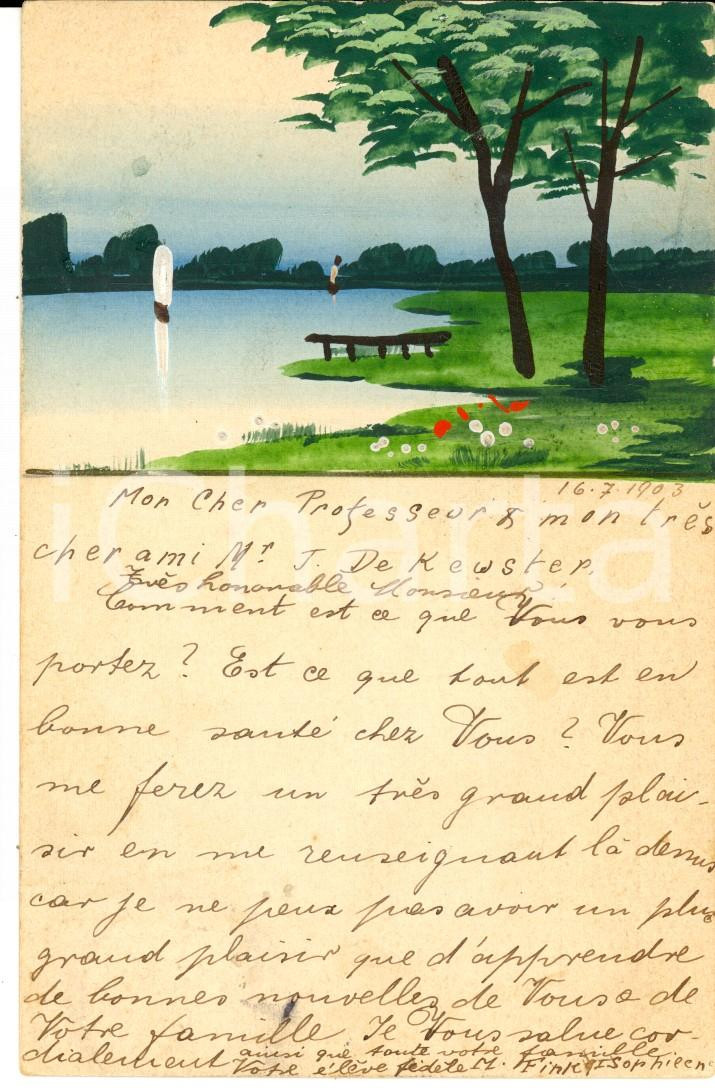 16.7.1903
Mon Cher Professeur & mon très
cher ami Mr J. De Kewster,
Très honorable Monsieur!
Comment est ce que Vous vous
portez? Est ce que tout est en
bonne santé chez Vous? Vous
me ferez un très grand plai-
sir en me renseignant là dessus
car je ne peux pas avoir un plus
grand plaisir que d'apprendre
de bonnes nouvelles de Vous & de
Votre famille Je Vous salue cor-
dialement ainsi que toute votre famille.
Votre élève fidèle M. Fink
iCharta